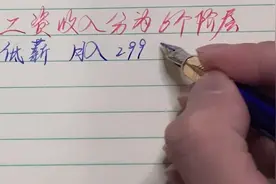 工资收入分为6个阶层
低薪 月入299